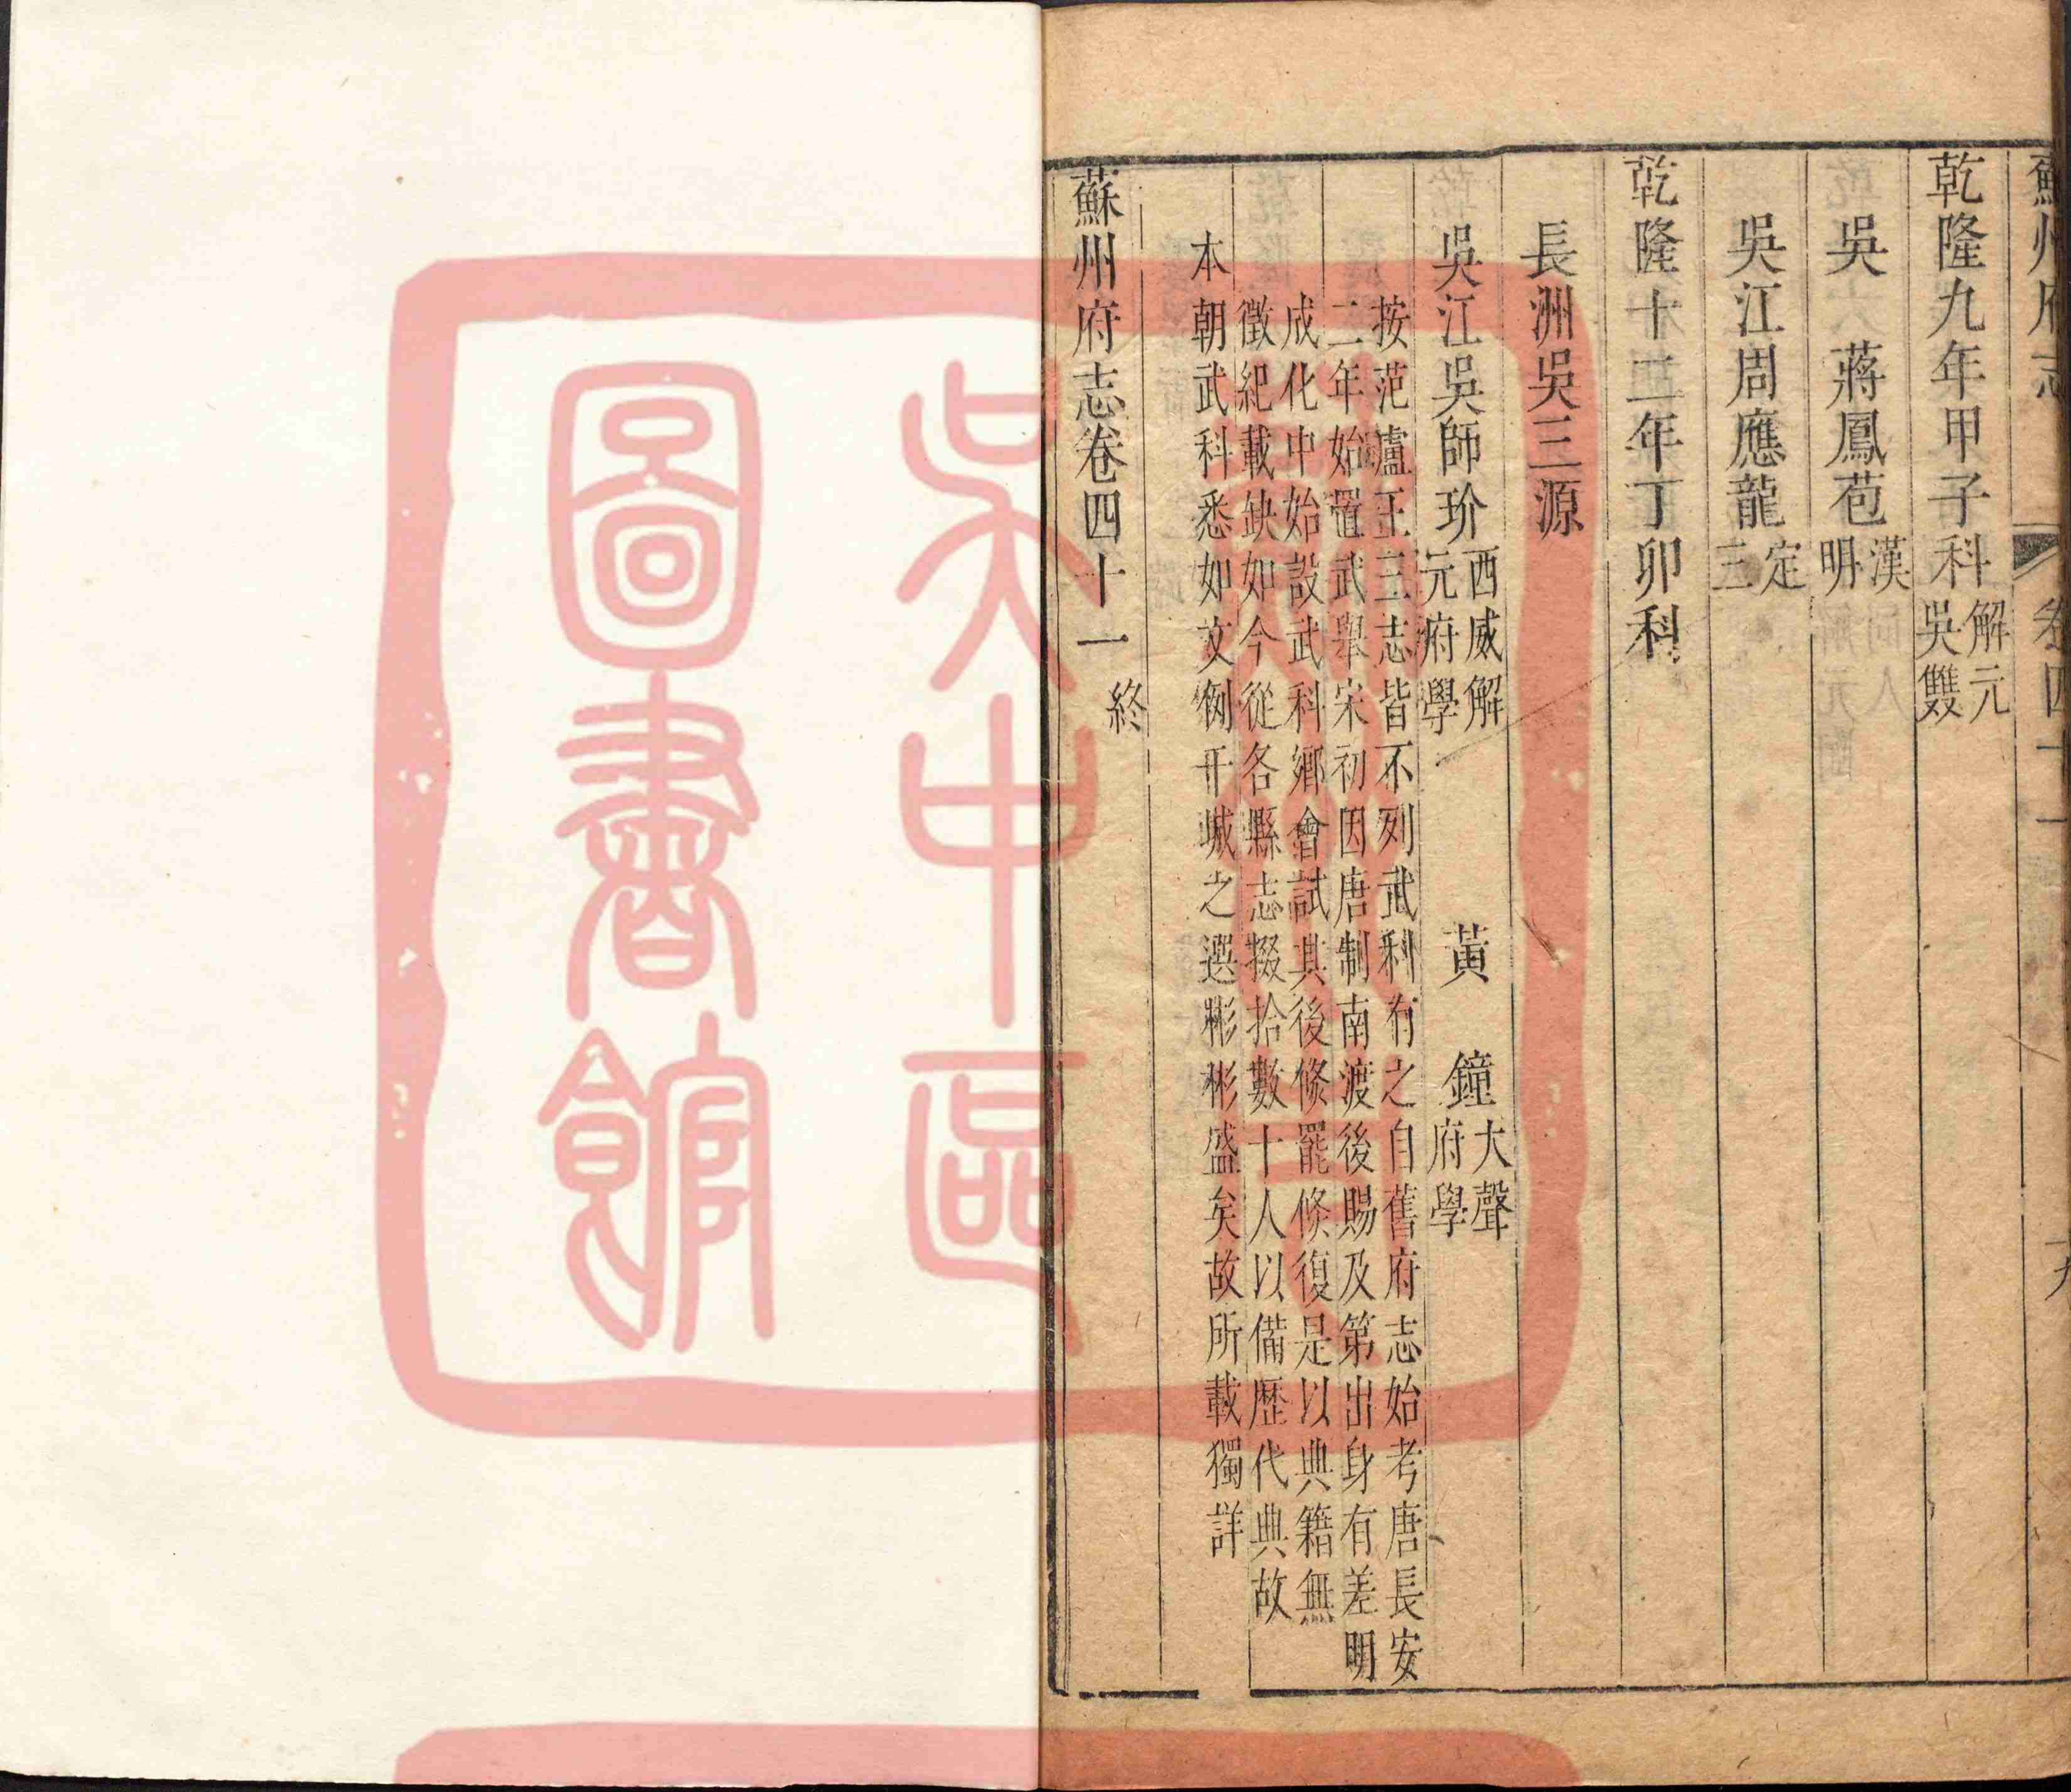 蘇州府志 卷四十一
乾隆九年甲子科解元吳雙
吳 蔣鳳苞漢明
吳江周應龍定三
乾隆十二年丁卯科
長洲吳三源
吳江吳師玠西威解元府學 黃 鐘大聲府學
按范盧王三志皆不列武科有之自舊府志始考唐長安
二年始置武舉宋初因唐制南渡後賜及第出身有差明
成化中始設武科鄉會試其後倏罷倏復是以典籍無
徵紀載缺如今從各縣志掇拾數十人以備歷代典故
本朝武科悉如文例干城之選彬彬盛矣故所載獨詳
蘇州府志卷四十一 終
吳中區
圖書館